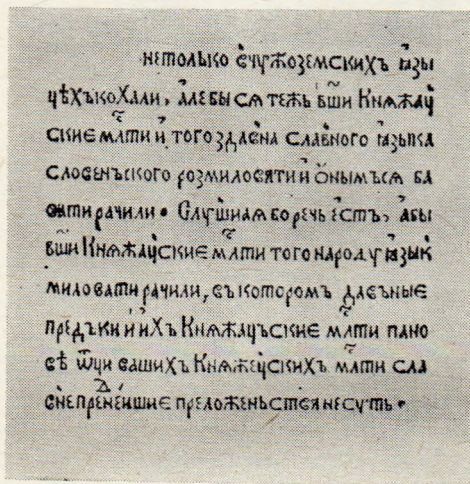 нетолько вчужоземскихъ ꙗзы
цѣхъкохали, але бы сѧ тежь вши Кнѧжац
ские млти и того здавна славного ꙗзыка
словенъского розмиловати и онымъсѧ ба
вити рачили. Слушнаѧ бо речь естъ, абы
вши Кнѧжацские млти того народу ꙗзык
миловати рачили, въкоторомъ давъные
предъки и ихъ Кнѧжацъские млти пано
ве ѿци вашихъ Кнѧжецскихъ млти сла
вне преⷣнеишие преложеньства несуть.